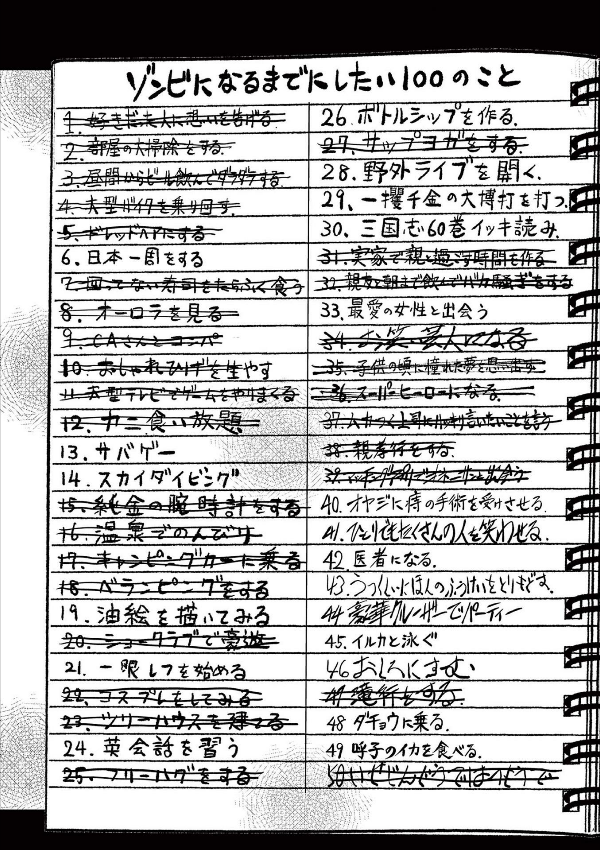 ゾンビになるまでにしたい100のこと
1. 好きだった人に想いを告げる
2. 部屋の大掃除をする
3. 昼間からビール飲んでダラダラする
4. 大型バイクを乗り回す
5. ドレッドヘアにする
6. 日本一周をする
7. 回ってない寿司をたらふく食う
8. オーロラを見る
9. CAさんとコンパ
10. おしゃれひげを生やす
11. 大型テレビでゲームをやりまくる
12. カニ食い放題
13. サバゲー
14. スカイダイビング
15. 純金の腕時計をする
16. 温泉でのんびり
17. キャンピングカーに乗る
18. ベランピングをする
19. 油絵を描いてみる
20. ショークラブで豪遊
21. 一眼レフを始める
22. コスプレをしてみる
23. ツリーハウスを建てる
24. 英会話を習う
25. フリーハグをする
26. ボトルシップを作る.
27. サップヨガをする.
28. 野外ライブを開く.
29. 一攫千金の大博打を打つ.
30. 三国志60巻イッキ読み.
31. 実家で親と過ごす時間を作る
32. 親友と朝まで飲んでバカ騒ぎをする
33. 最愛の女性と出会う
34. お笑い芸人になる
35. 子供の頃に憧れた夢を思い出す
36. スーパーヒーローになる.
37. ムカつく上司にハッキリ言いたいことを言う
38. 親孝行をする.
39.
40. オヤジに痔の手術を受けさせる.
41. ひとりでもたくさんの人を笑わせる.
42. 医者になる.
43. うつくしいにほんのふうけいをとりもどす.
44. 豪華クルーザーでパーティー
45. イルカと泳ぐ
46 おしろにすむ
47 滝行をする.
48 ダチョウに乗る.
49 呼子のイカを食べる.
50